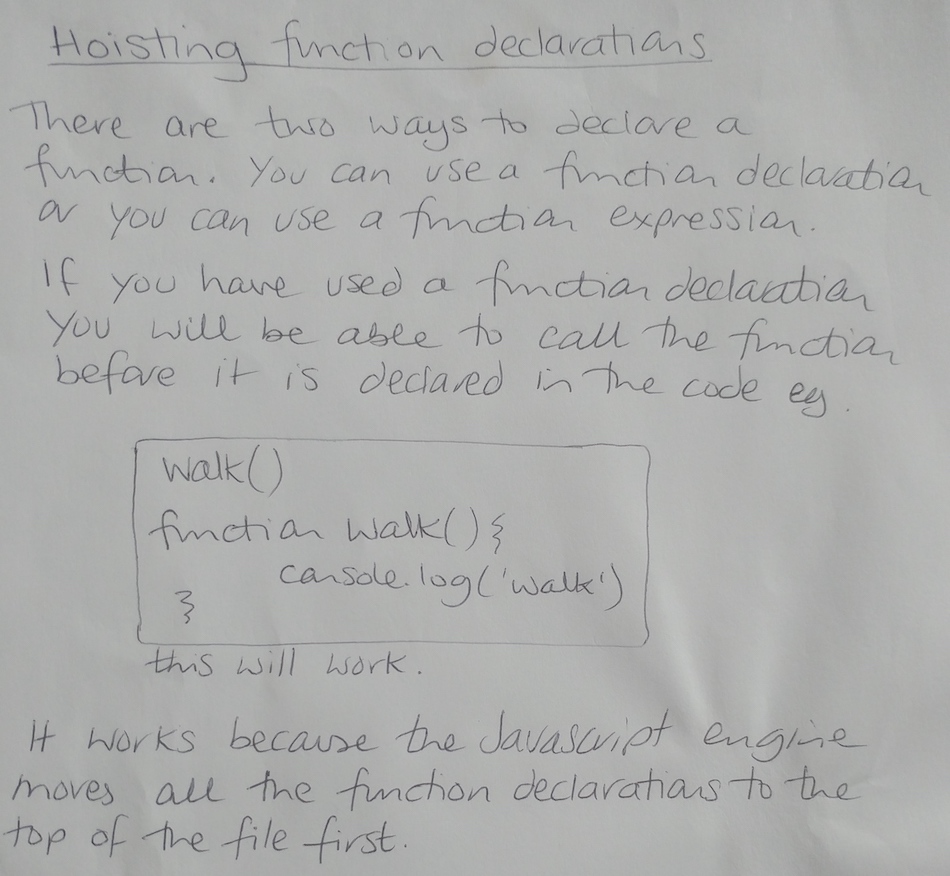 Hoisting function declarations
There are two ways to declare a
function. You can use a function declaration
or you can use a function expression.
If you have used a function declaration
you will be able to call the function
before it is declared in the code eg.
walk()
function walk(){
console.log('walk')
}
this will work.
It works because the Javascript engine
moves all the function declarations to the
top of the file first.